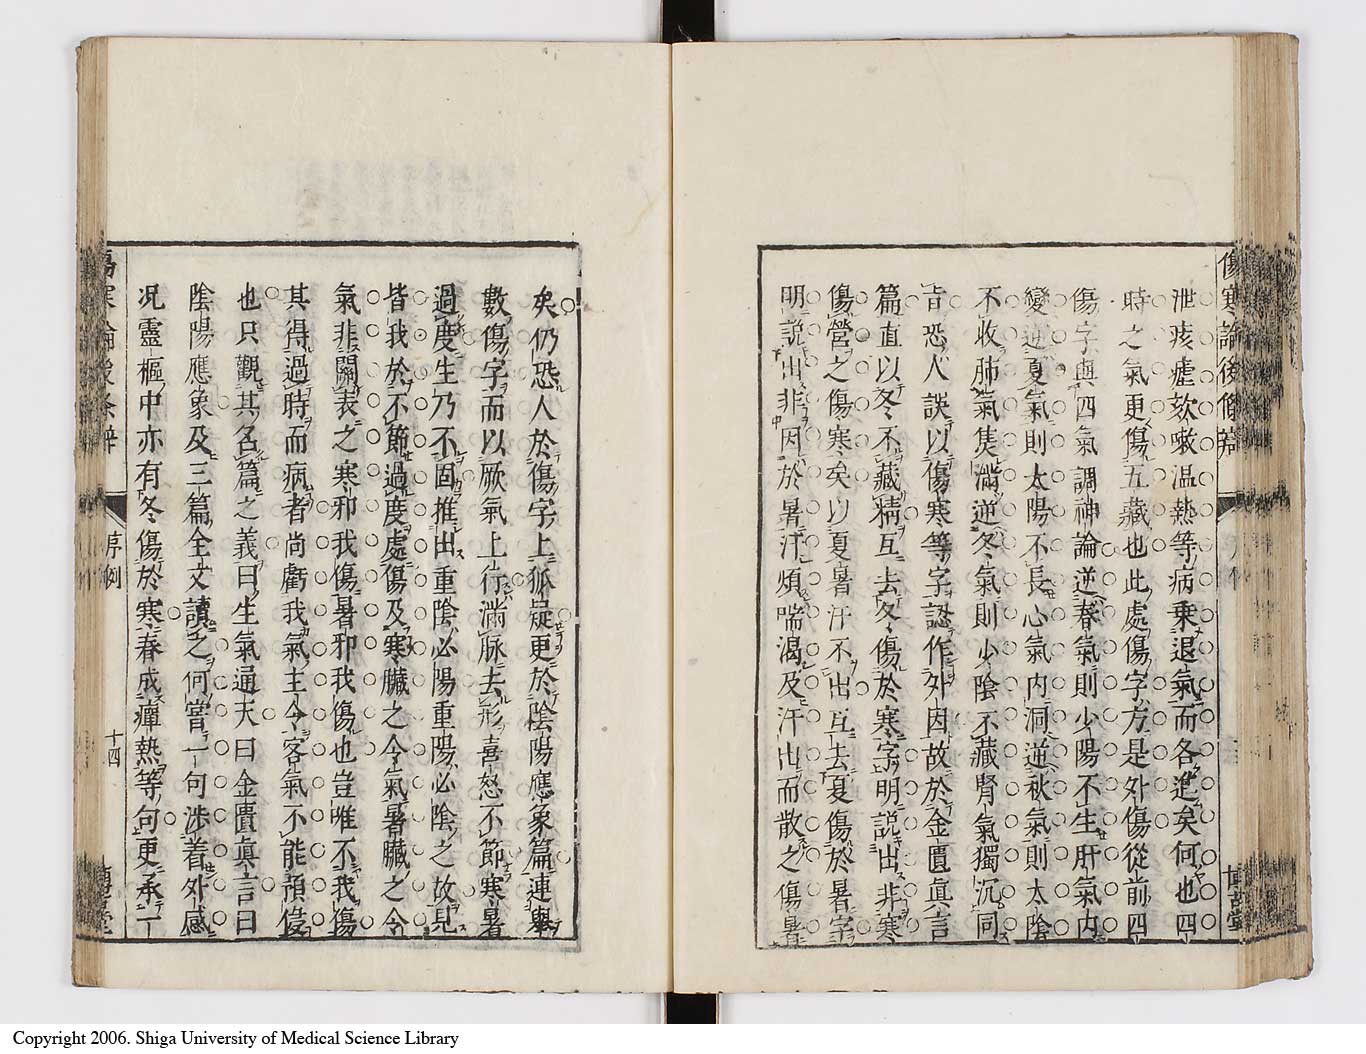 傷寒論後條辨
泄痎瘧欬嗽温熱等病乗退氣而各進矣何也四
時之氣更傷五藏也此處傷字方是外傷從前四
傷字與四氣調神論逆春氣則少陽不生肝氣内
變逆夏氣則太陽不長心氣内洞逆秋氣則太陰
不收肺氣焦滿逆冬氣則少陰不藏腎氣獨沉同
旨恐人誤以傷寒等字認作外因故於金匱眞言
篇直以冬不藏精互去冬傷於寒字明説出非寒
傷營之傷寒矣以夏暑汗不出互去夏傷於暑字
明説出非因於暑汗煩喘渴及汗出而散之傷暑
博古堂
矣仍恐人於傷字上狐疑更於陰陽應象篇連舉
數傷字而以厥氣上行滿脉去形喜怒不節寒暑
過度生乃不固推出重陰必陽重陽必陰之故見
皆我於不節過度處傷及寒臟之令氣暑臟之令
氣非關表之寒邪我傷暑邪我傷也豈唯不我傷
其得過時而病者尚虧我氣主令客氣不能預侵
也只觀其名篇之義曰生氣通天曰金匱眞言曰
陰陽應象及三篇全文讀之何嘗一句渉着外感
况靈樞中亦有冬傷於寒春成癉熱等句更承一
傷寒論後条辨
序例
十四
Copyright 2006. Shiga University of Medical Science Library